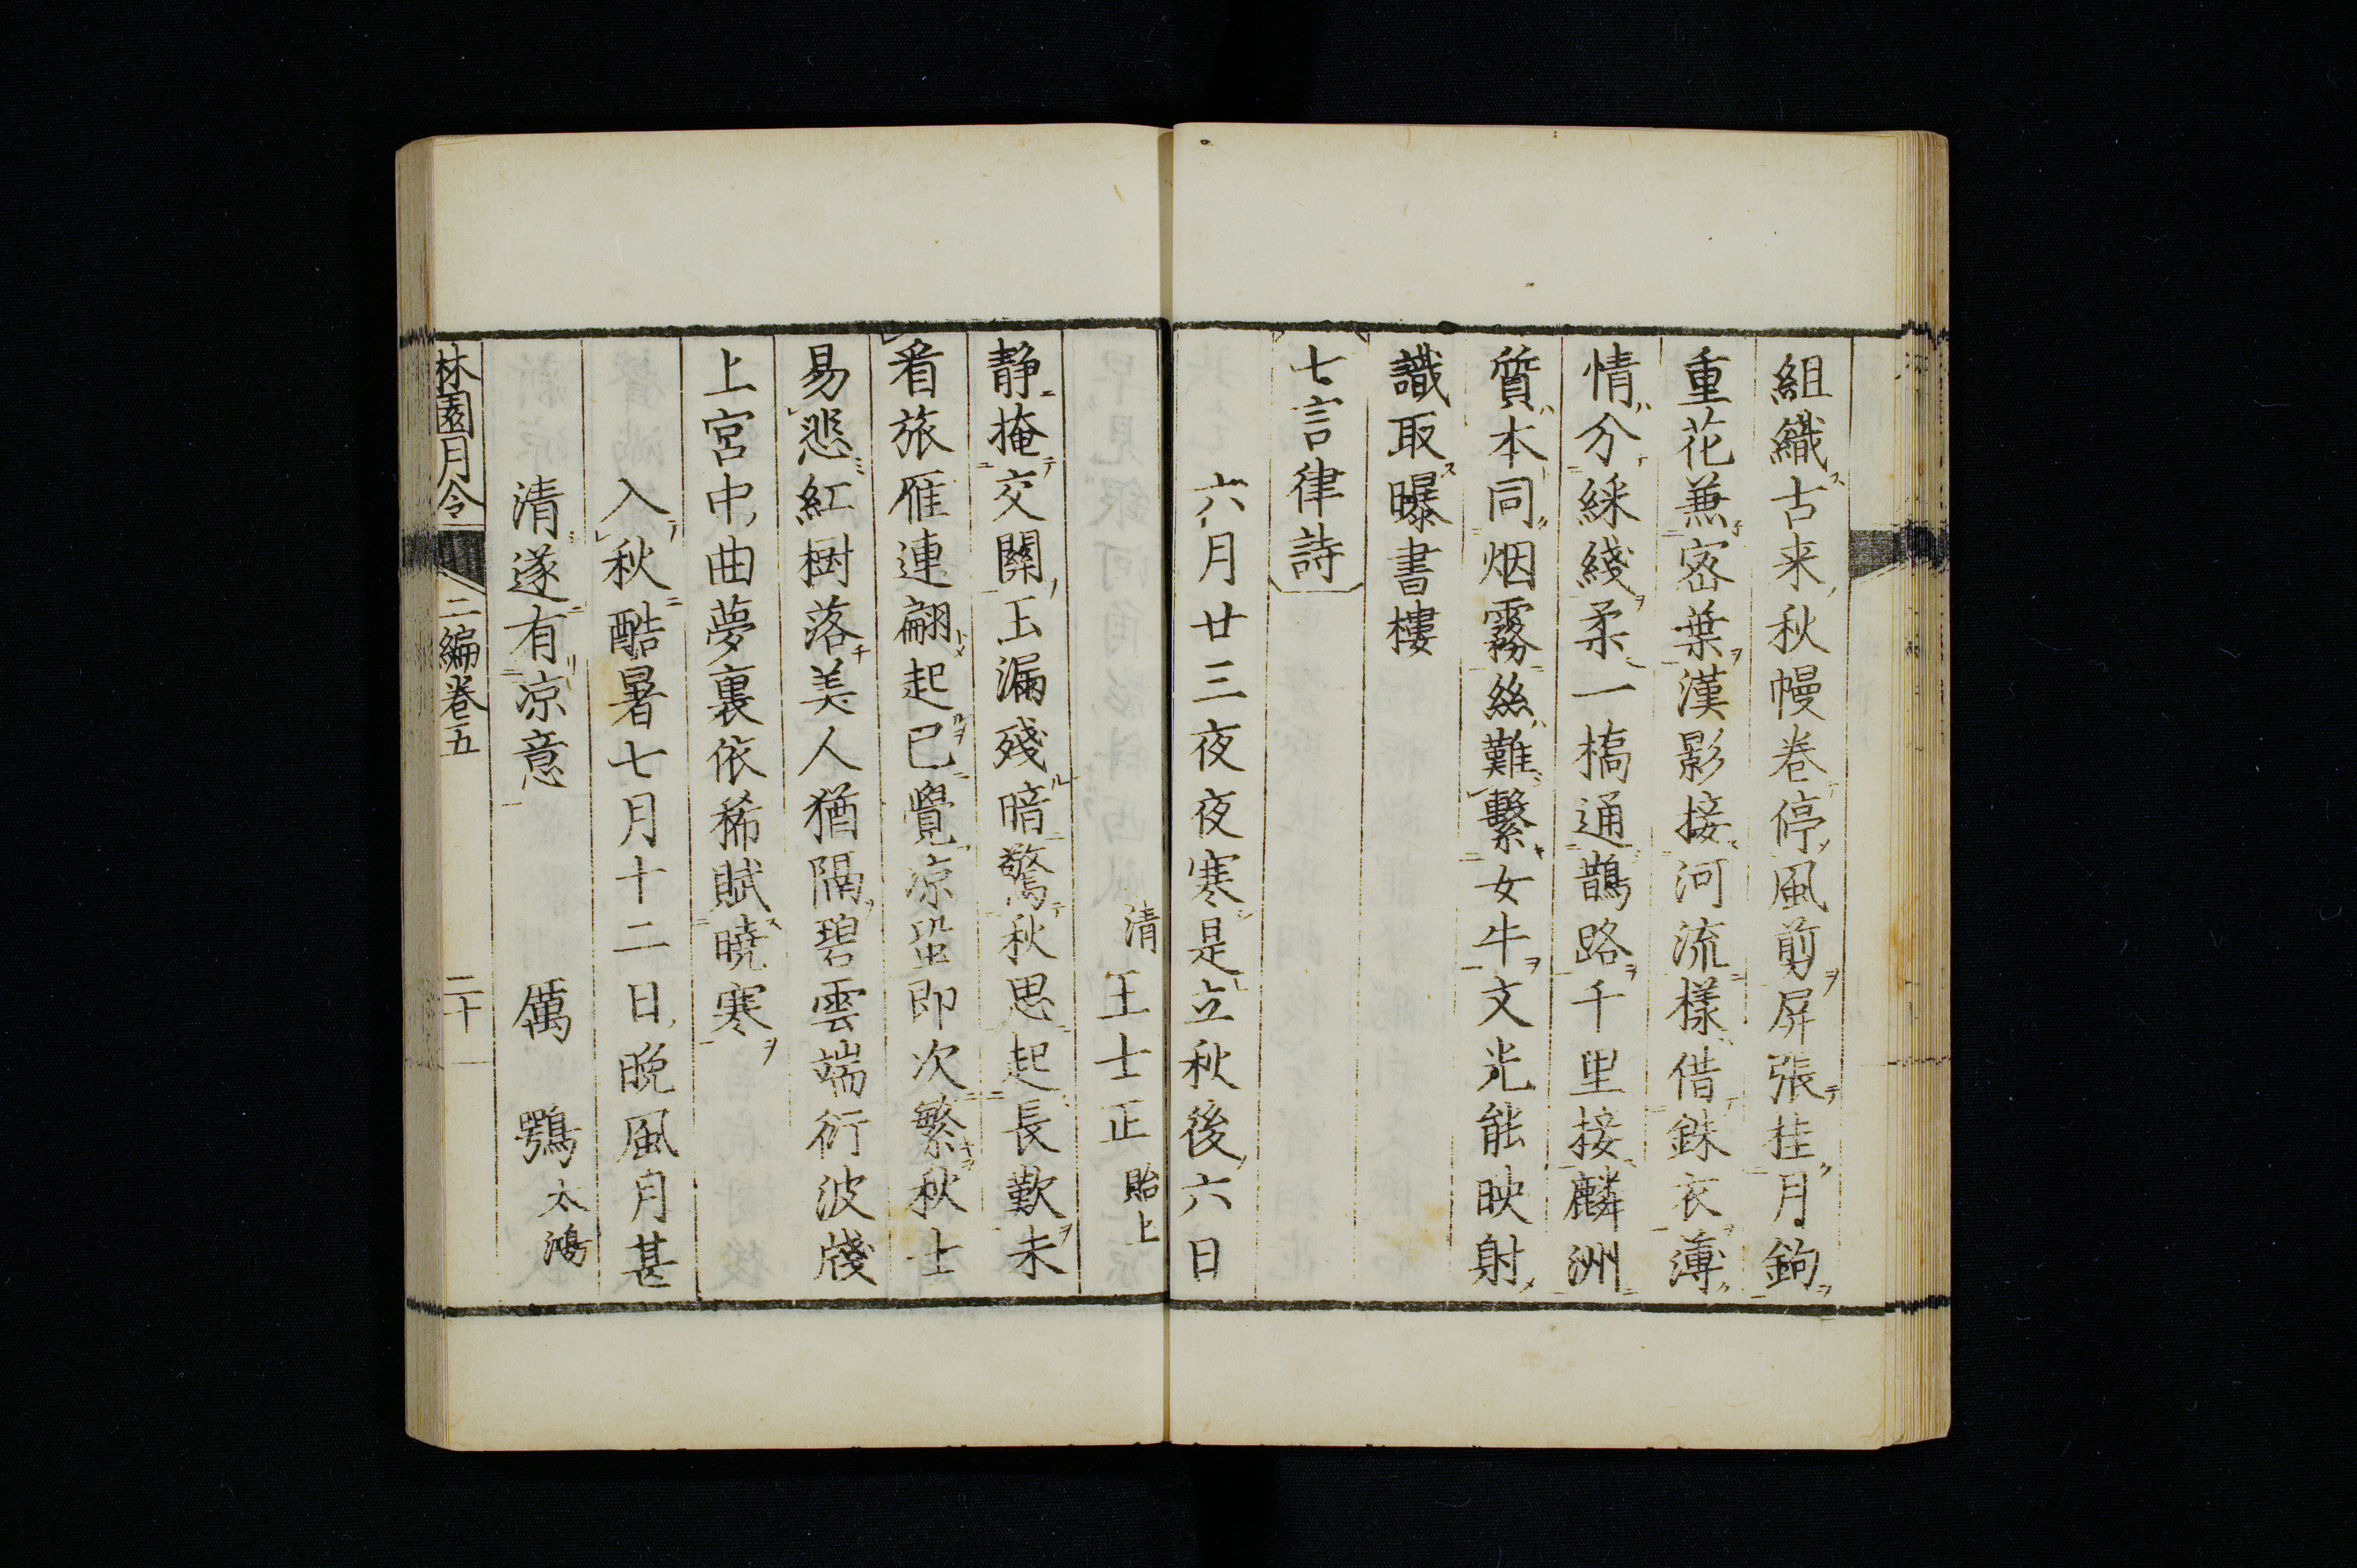 組織古来秋幔巻停風剪屏張桂月鉤
重花兼宻葉漢影接河流様借銖衣薄
情分綵綫柔一橋通鵲路千里接麟洲
質本同烟霧絲難繋女牛文光能映射
識取曝書樓
七言律詩
六月廿三夜夜寒是立秋後六日
清 王士正 貽上
静掩交關玉漏殘暗驚秋思起長歎未
看旅雁連翩起已覺凉蛩即次繁秋士
易悲紅樹落美人猶隔碧雲端衍波牋
上宮中曲夢裏依稀賦曉寒
入秋酷暑七月十二日晩風月甚
清遂有凉意 厲 鶚 太鴻
林園月令 二編巻五 二十